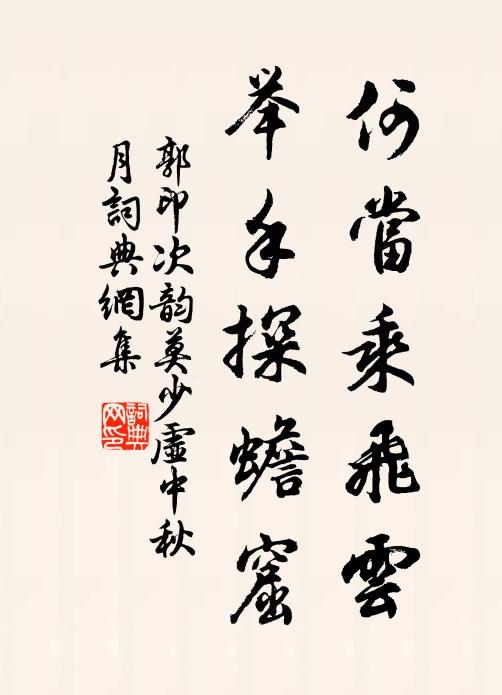 何當乘飛雲
举手探蟾窟
郭印次韵莫少虛中秋
月詞典網集
詞典网印